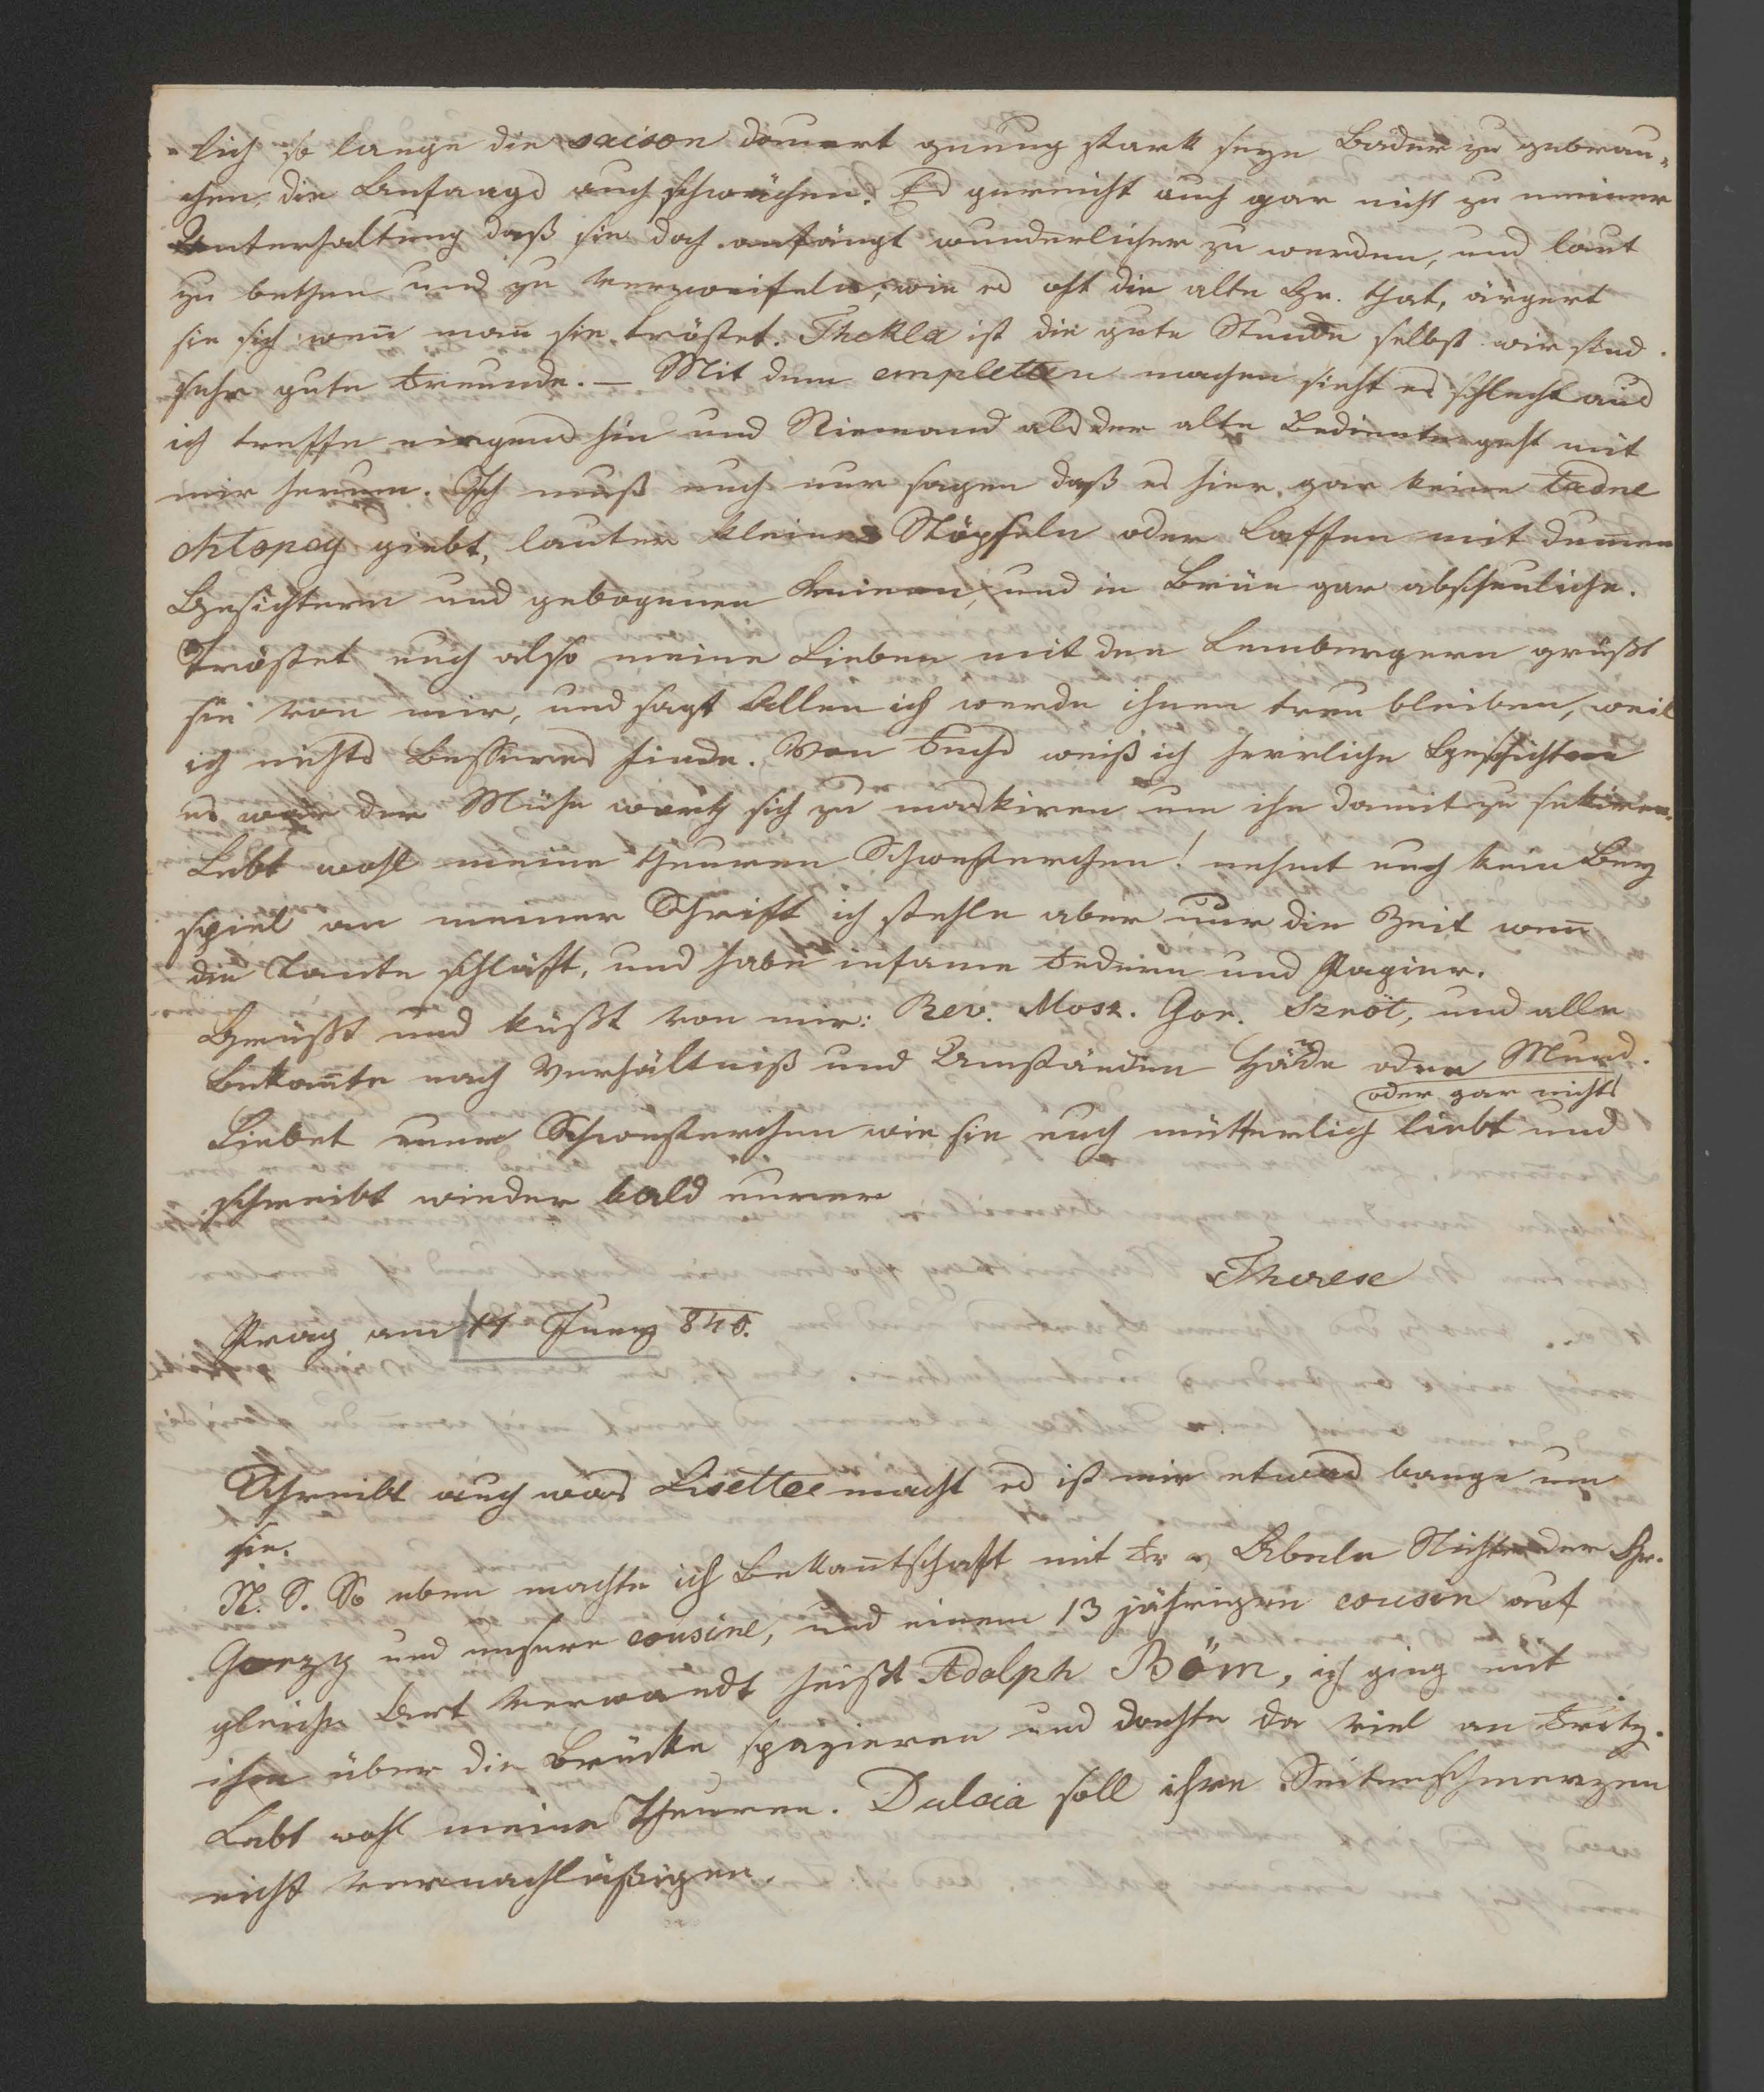 lich so lange die saison dauert genung stark seyn Bäder zu gebrau-
chen, die Anfangs auch schwächen. Es gereicht auch gar nicht zu meiner
Unterhaltung daß sie doch anfängt wunderlicher zu werden, und laut
zu bethen und zu verzweifeln, wie es oft die alte Gr. that, ärgert
sie sich wen̄ man sie tröstet. Thekla ist die gute Stunde selbst wir sind
sehr gute Freunde. — Mit dem empletten machen sieht es schlecht aus
ich treffe nirgends hin und Niemand als der alte Bediente geht mit
mir herum. Ich muß euch nur sagen daß es hier gar keine ładne
chłopcy giebt, lauter kleine Stöpseln oder Laffen mit dum̄en
Gesichtern und gebogenen Beinen, und in Brün̄ gar abscheuliche.
Tröstet euch also meine Lieben mit den Lembergern grüßt
sie von mir, und sagt Allen ich werde ihnen treu bleiben, weil
ich nichts Besseres finde. Von Fuchs weiß ich herrliche Geschichten
es wäre der Mühe werth sich zu maskiren um ihn damit zu sekiren.
Lebt wohl meine theuren Schwesterchen! nehmt euch kein Bey
spiel an meiner Schrift ich stehle aber nur die Zeit wen̄
die Tante schläft, und habe infame Federn und Papier.
Grüßt und küßt von mir: Rev. Mosz. Gor. und alle
Bekan̄te nach Verhältniß und Umständen Hände oder Mund.
oder gar nichts
Liebet euer Schwesterchen wie sie euch mütterlich liebt und
schreibt wieder bald eurer
Therese
Prag am 11 Juny 840.
Schreibt auch was Lisette macht es ist mir etwas bange um
sie.
N. S. So eben machte ich Bekan̄tschaft mit Fr v Abele Nichte der Gr.
und unsere cousine, und einem 13 jährigen cousin auf
gleiche Art verwandt heißt Adolph Böm, ich ging mit
ihm über die Brücke spazieren und dachte da viel an Fritz.
Lebt wohl meine Theuren. Dulcia soll ihre Seitenschmerzen
nicht vernachläßigen.